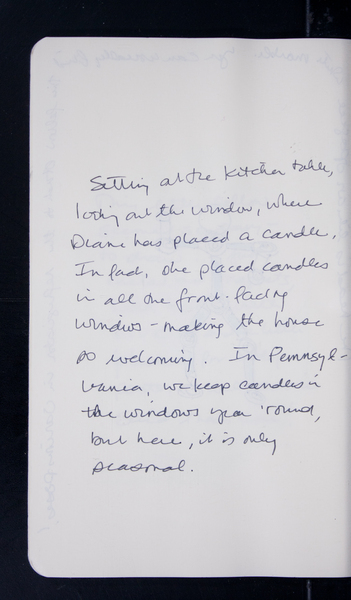 Sitting at the kitchen table,
looking out the window, where
Diane has placed a candle.
In fact, she placed candles
in all the front-facing
windows - making the house
so welcoming. In Pennsyl-
vania, we keep candles in
the windows year 'round,
but here, it is only
seasonal.